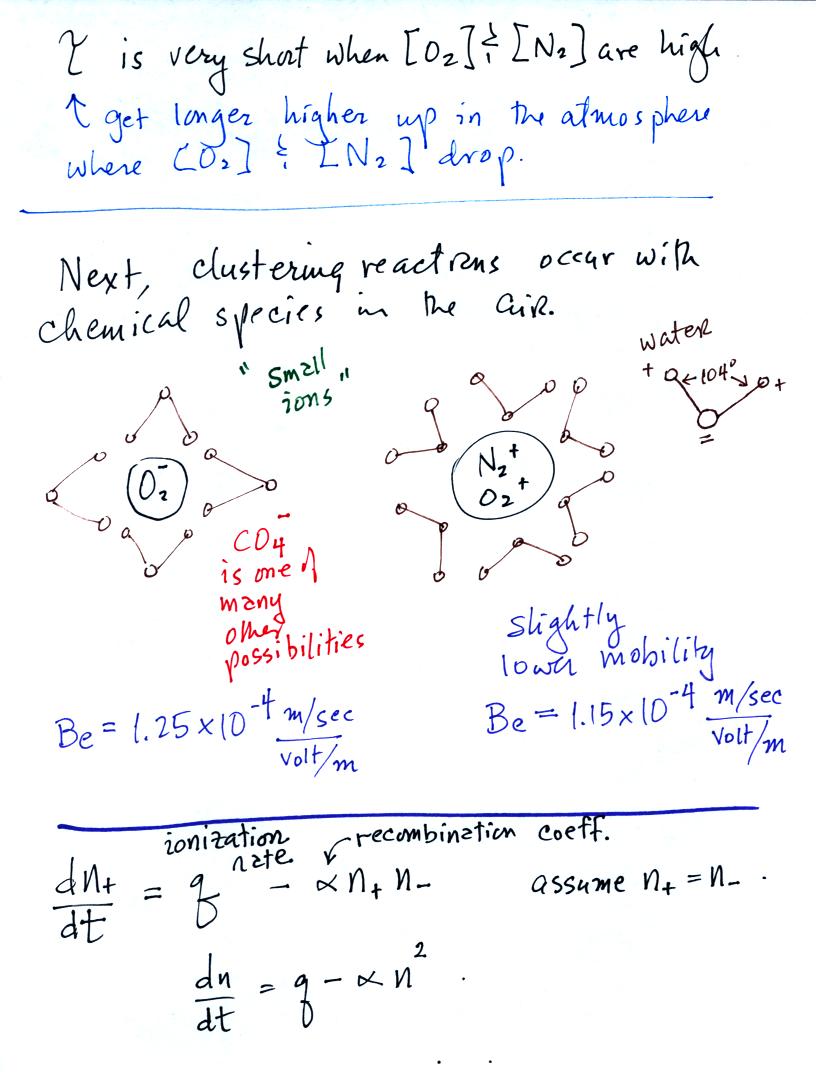 τ is very short when [O₂] & [N₂] are high
↑ get longer higher up in the atmosphere
where [O₂] & [N₂] drop.
Next, clustering reactions occur with
chemical species in the air.
"small
ions"
water
+ ←104°→ +
=
O₂⁻
N₂⁺
O₂⁺
CO₄⁻
is one of
many
other
possibilities
slightly
lower mobility
Be = 1.25 x 10⁻⁴ m/sec
volt/m
Be = 1.15 x 10⁻⁴ m/sec
volt/m
ionization
rate
recombination coeff.
dn₊/dt = q - αn₊n₋
assume n₊ = n₋.
dn/dt = q - αn².